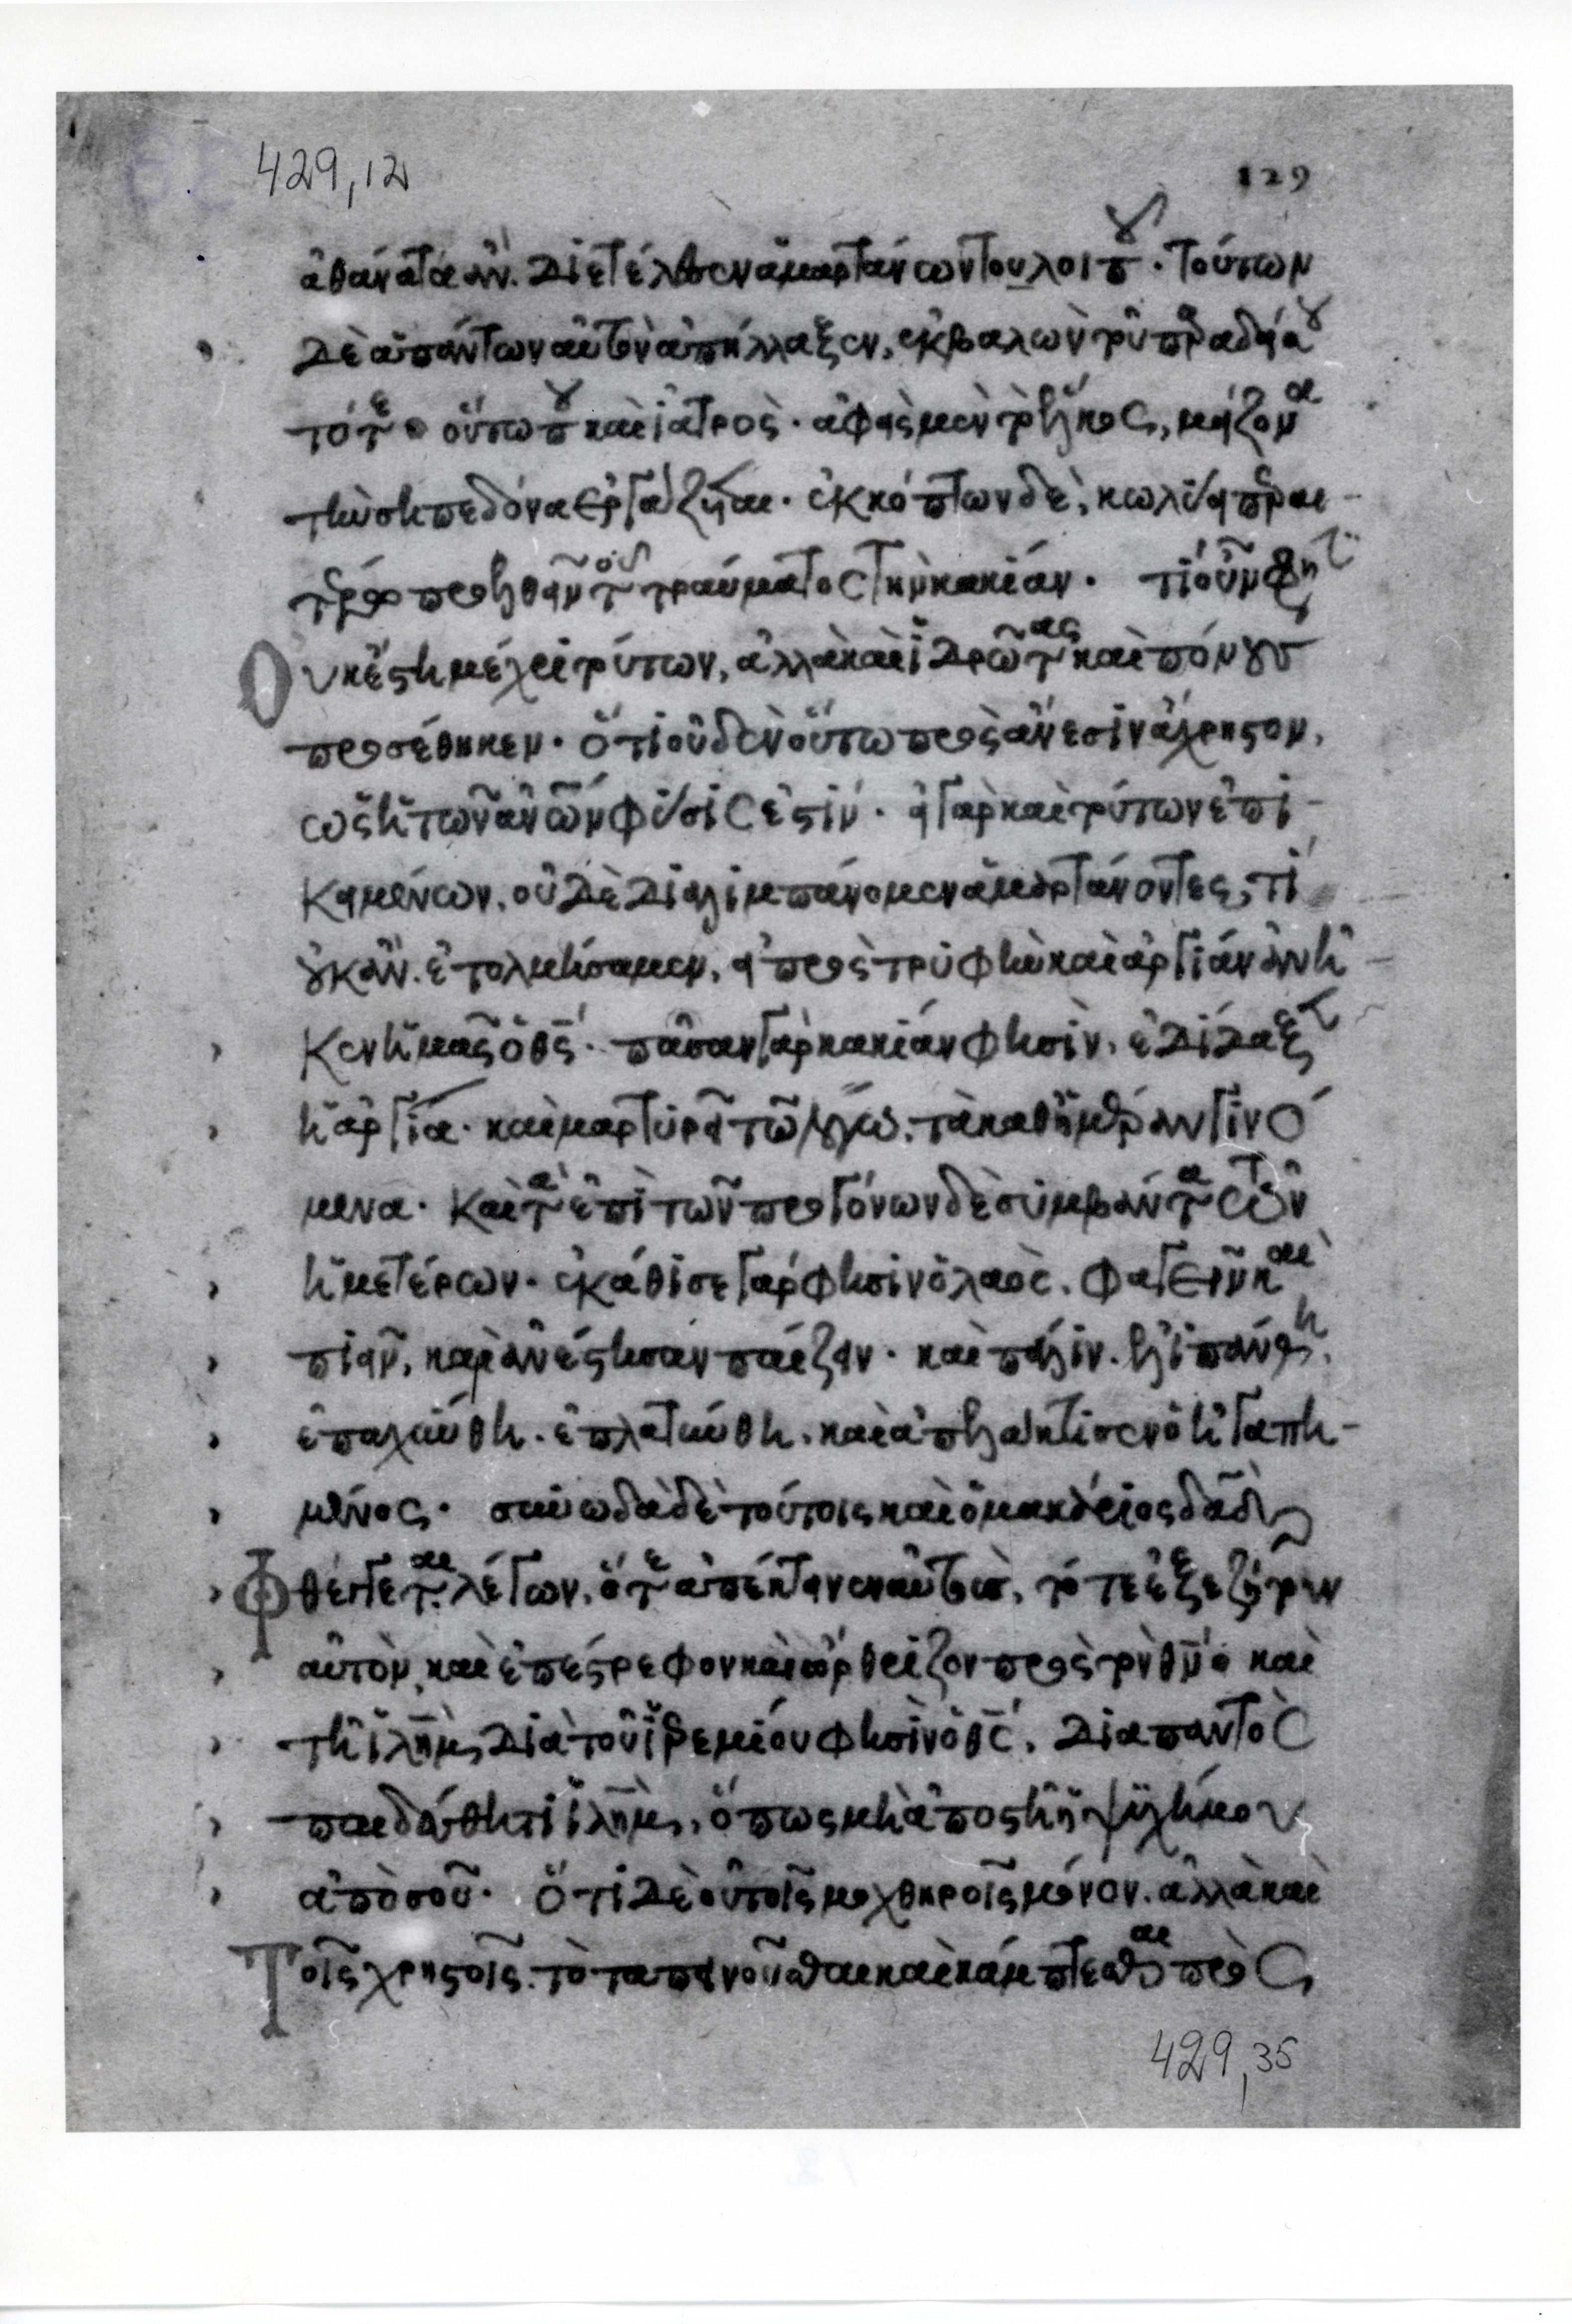 429,12
129
ἀθάνατα ἦν. διετέλεσεν ἁμαρτάνων τοῦ λοιποῦ· τούτων
δὲ ἁπάντων αὐτὸν ἀπήλλαξεν, ἐκβαλὼν τοῦ παραδείσου
τότε· οὕτω που καὶ ἰατρὸς· ἀφεὶς μὲν τὸ ἕλκος, μείζονα
τὴν σηπεδόνα ἐργάζεται· ἐκκόπτων δὲ, κωλύει περαι-
τέρω προελθεῖν τοῦ τραύματος τὴν κακίαν· τί οὖν φησιν
Οὐκ ἔστη μέχρι τούτων, ἀλλὰ καὶ ἱδρῶτας καὶ πόνους
προσέθηκεν· ὅτι οὐδὲν οὕτω πρὸς ἄνεσιν ἄχρηστον,
ὡς ἡ τῶν ἀνθρώπων φύσις ἐστίν· εἰ γὰρ καὶ τούτων ἐπι-
κειμένων, οὐδὲ διαλιμπάνομεν ἁμαρτάνοντες, τί
οὐκ ἂν ἐτολμήσαμεν, εἰ πρὸς τρυφὴν καὶ ἀργίαν ἀνῆ-
κεν ἡμᾶς ὁ θς· πᾶσαν γὰρ κακίαν φησὶν, ἐδίδαξεν
ἡ ἀργία· καὶ μαρτυρεῖ τῷ λόγῳ, τὰ καθ' ἡμέραν γινό
μενα· καὶ τὰ ἐπὶ τῶν προγόνων δὲ συμβάντα τῶν
ἡμετέρων· ἐκάθισε γάρ φησιν ὁ λαὸς, φαγεῖν καὶ
πιεῖν, καὶ ἀνέστησαν παίζειν· καὶ πάλιν. ἐλιπάνθη,
ἐπαχύνθη. ἐπλατύνθη. καὶ ἀπελάκτισεν ὁ ἠγαπη-
μένος· συνῳδὰ δὲ τούτοις καὶ ὁ μακάριος δαδ
φθέγγεται λέγων, ὅτε ἀπέκτεινεν αὐτοὺς, τότε ἐξεζήτουν
αὐτὸν, καὶ ἐπέστρεφον καὶ ὤρθριζον πρὸς τὸν θν· καὶ
τῇ ἰλημ διὰ τοῦ ἱερεμίου φησὶν ὁ θς, διαπαντὸς
παιδεύθητι ἰλημ, ὅπως μὴ ἀποστῇ ἡ ψυχή μου
ἀπὸ σοῦ· ὅτι δὲ οὐ τοῖς μοχθηροῖς μόνον. ἀλλὰ καὶ
τοῖς χρηστοῖς. τὸ ταπεινοῦσθαι καὶ κάμπτεσθαι πρὸς
429,35